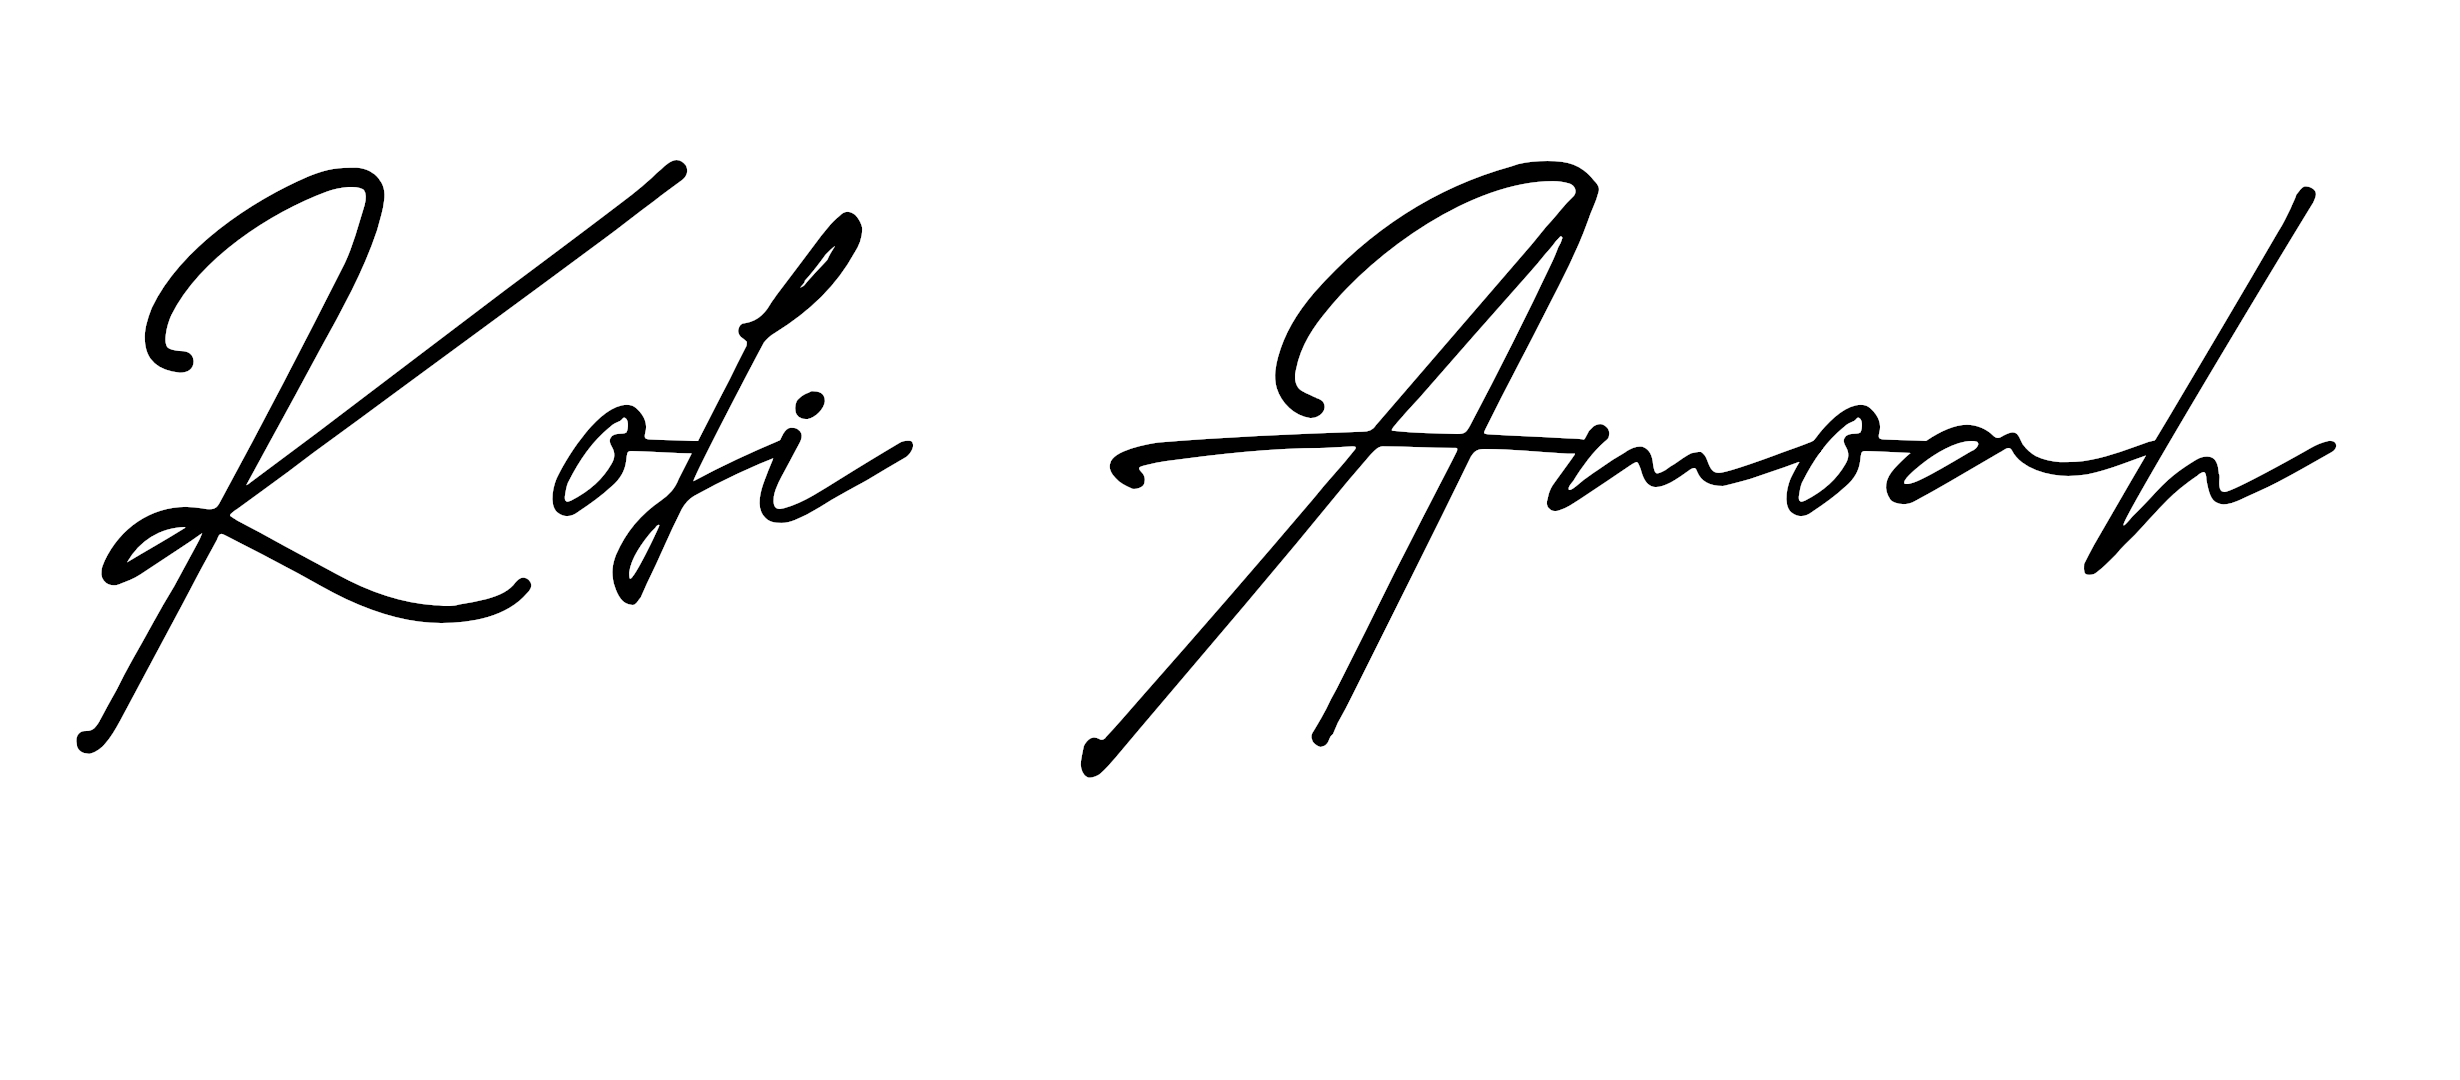 Kofi Amoah